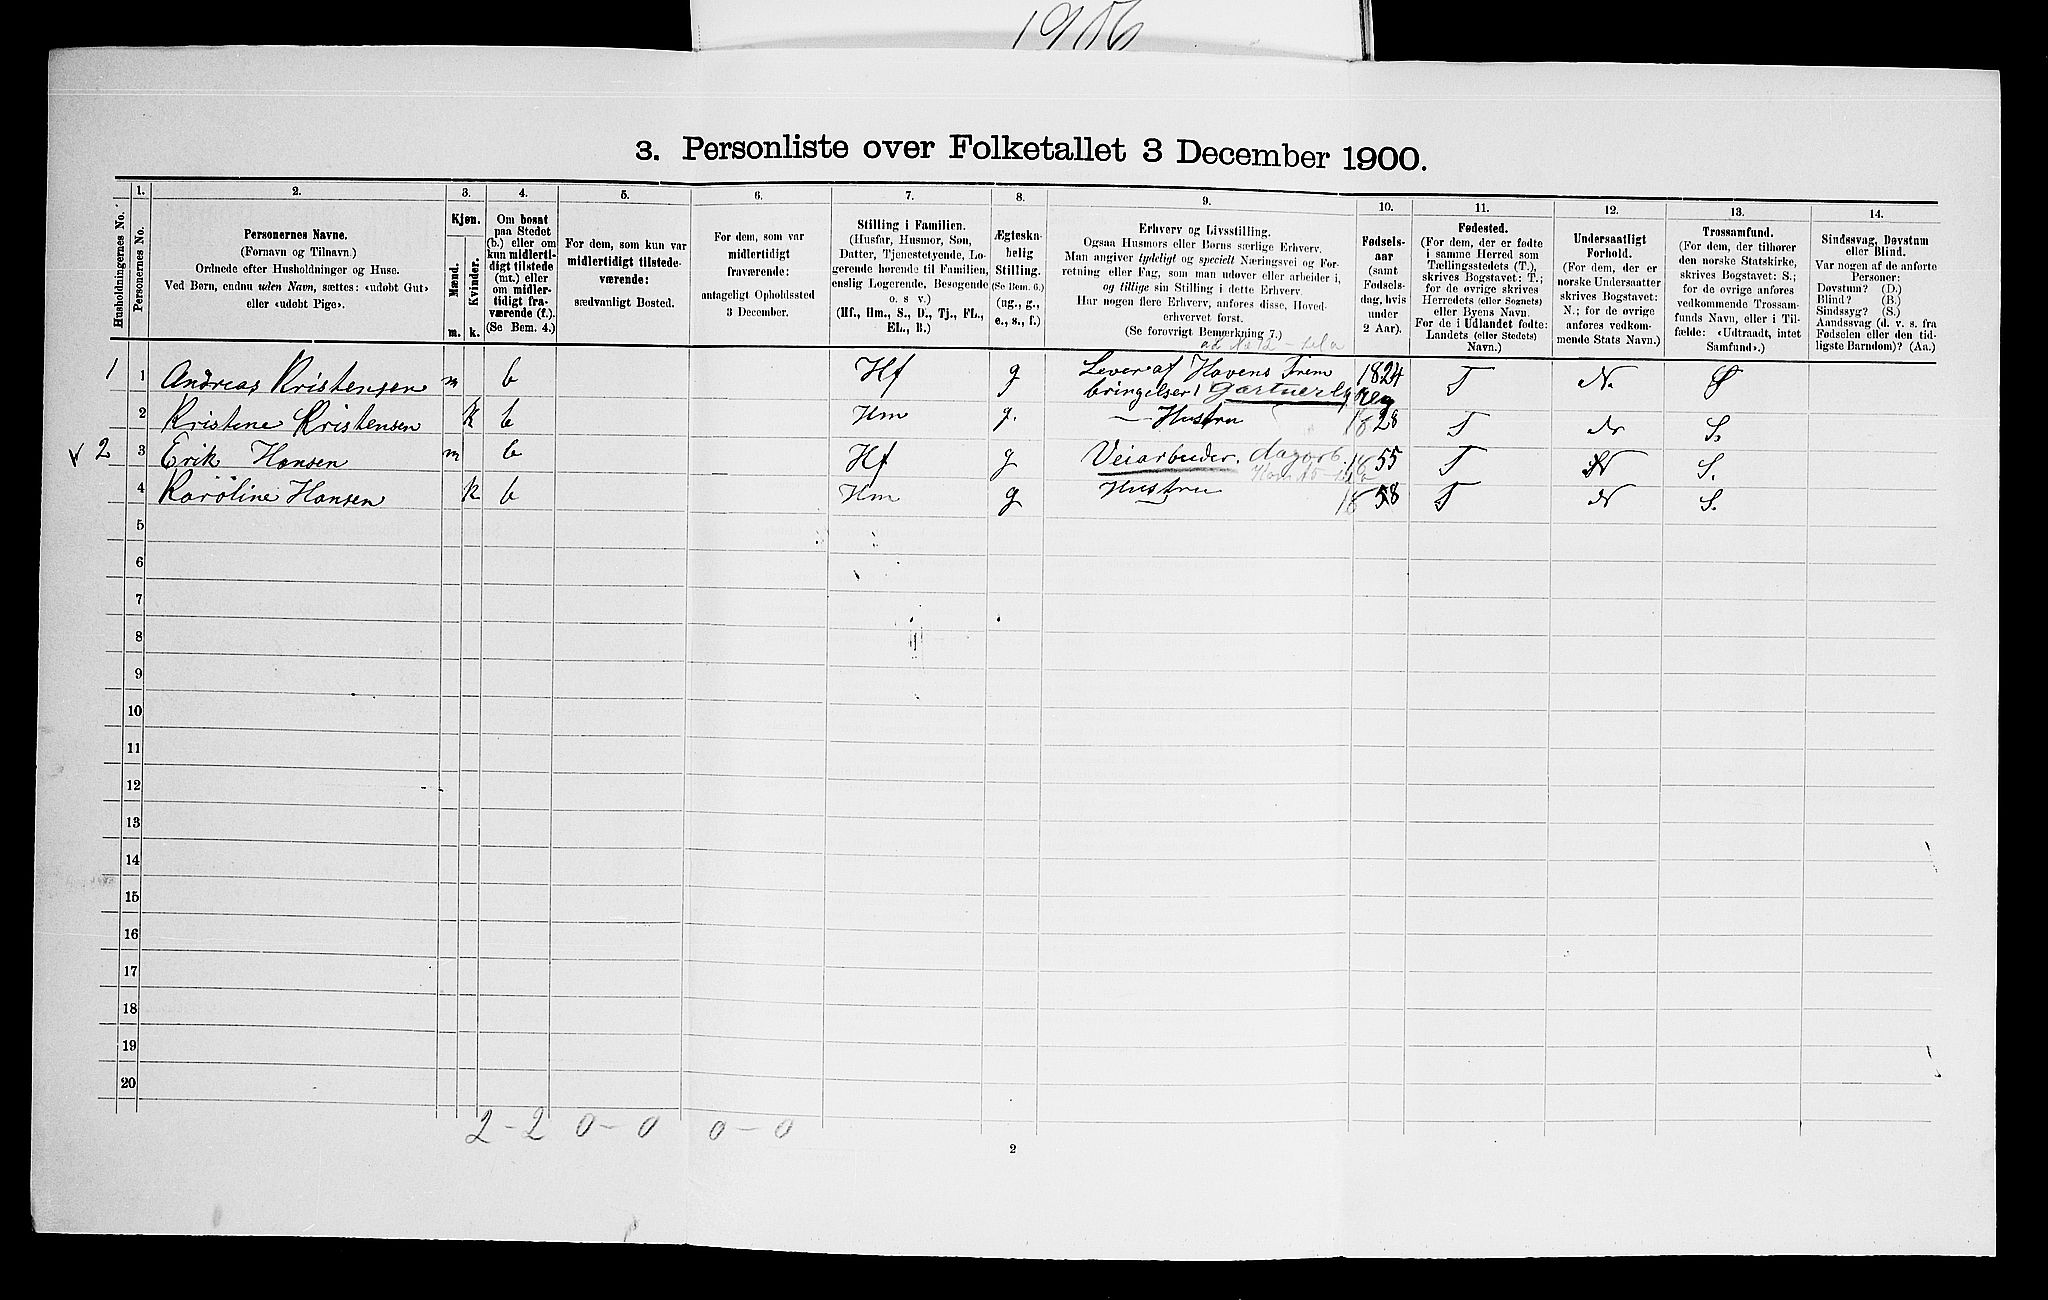 1906
3. Personliste over Folketallet 3 December 1900.
Husholdningernes No.
1.
Personernes No.
2.
Personernes Navne.
(Fornavn og Tilnavn.)
Ordnede efter Husholdninger og Huse.
Ved Børn, endnu uden Navn, sættes: «udøbt Gut»
eller «udøbt Pige».
3.
Kjøn.
Mænd.
Kvinder.
m.
k.
4.
Om bosat
paa Stedet
(b.) eller om
kun midlerti-
digt tilstede
(mt.) eller
om midler-
tidigt fra-
værende (f.).
(Se Bem. 4.)
5.
For dem, som kun var
midlertidigt tilstede-
værende:
sædvanligt Bosted.
6.
For dem, som var
midlertidigt
fraværende:
antageligt Opholdssted
3 December.
7.
Stilling i Familien.
(Husfar, Husmor, Søn,
Datter, Tjenestetyende, Lo-
gerende hørende til Familien,
enslig Logerende, Besøgende
o. s v.)
(Hf., Hm., S., D., Tj., FL.,
EL., B.)
8.
Ægteska-
belig
Stilling.
(Se Bem. 6.)
(ug., g.,
e., s., f.)
9.
Erhverv og Livsstilling.
Ogsaa Husmors eller Børns særlige Erhverv.
Man angiver tydeligt og specielt Næringsvei og For-
retning eller Fag, som man udøver eller arbeider i,
og tillige sin Stilling i dette Erhverv.
Har nogen flere Erhverv, anføres disse, Hoved-
erhvervet først.
(Se forøvrigt Bemærkning 7.)
10.
Fødsels-
aar
(samt
Fødsels-
dag, hvis
under
2 Aar).
11.
Fødested.
(For dem, der er fødte
i samme Herred som
Tællingsstedets (T.),
skrives Bogstavet: T.;
for de øvrige skrives
Herredets (eller Sognets)
eller Byens Navn.
For de i Udlandet fødte:
Landets (eller Stedets)
Navn.)
12.
Undersaatligt
Forhold.
(For dem, der er
norske Undersaatter
skrives Bogstavet:
N.; for de øvrige
anføres vedkom-
mende Stats Navn.)
13.
Trossamfund.
(For dem, der tilhører
den norske Statskirke,
skrives Bogstavet: S.;
for de øvrige anføres
vedkommende Trossam-
funds Navn, eller i Til-
fælde: «Udtraadt, intet
Samfund».)
14.
Sindssvag, Døvstum
eller Blind.
Var nogen af de anførte
Personer:
Døvstum? (D.)
Blind? (B.)
Sindssyg? (S.)
Aandssvag (d. v. s. fra
Fødselen eller den tid-
ligste Barndom)? (Aa.)
1 1 Andreas Kristensen m b Hf g Lever af Havens Frem 1824 T N. S
bringelser
2 Kristene Kristensen k b Hm g. — Hustru 1828 T N S.
2 3 Erik Hansen m b Hf g Veiarbeider. dagarb 1855 T N S.
4 Karoline Hansen k b Hm g Hustru 1858 T N S.
5
6
7
8
9
10
11
12
13
14
15
16
17
18
19
20
2 - 2 0 - 0 0 - 0
2